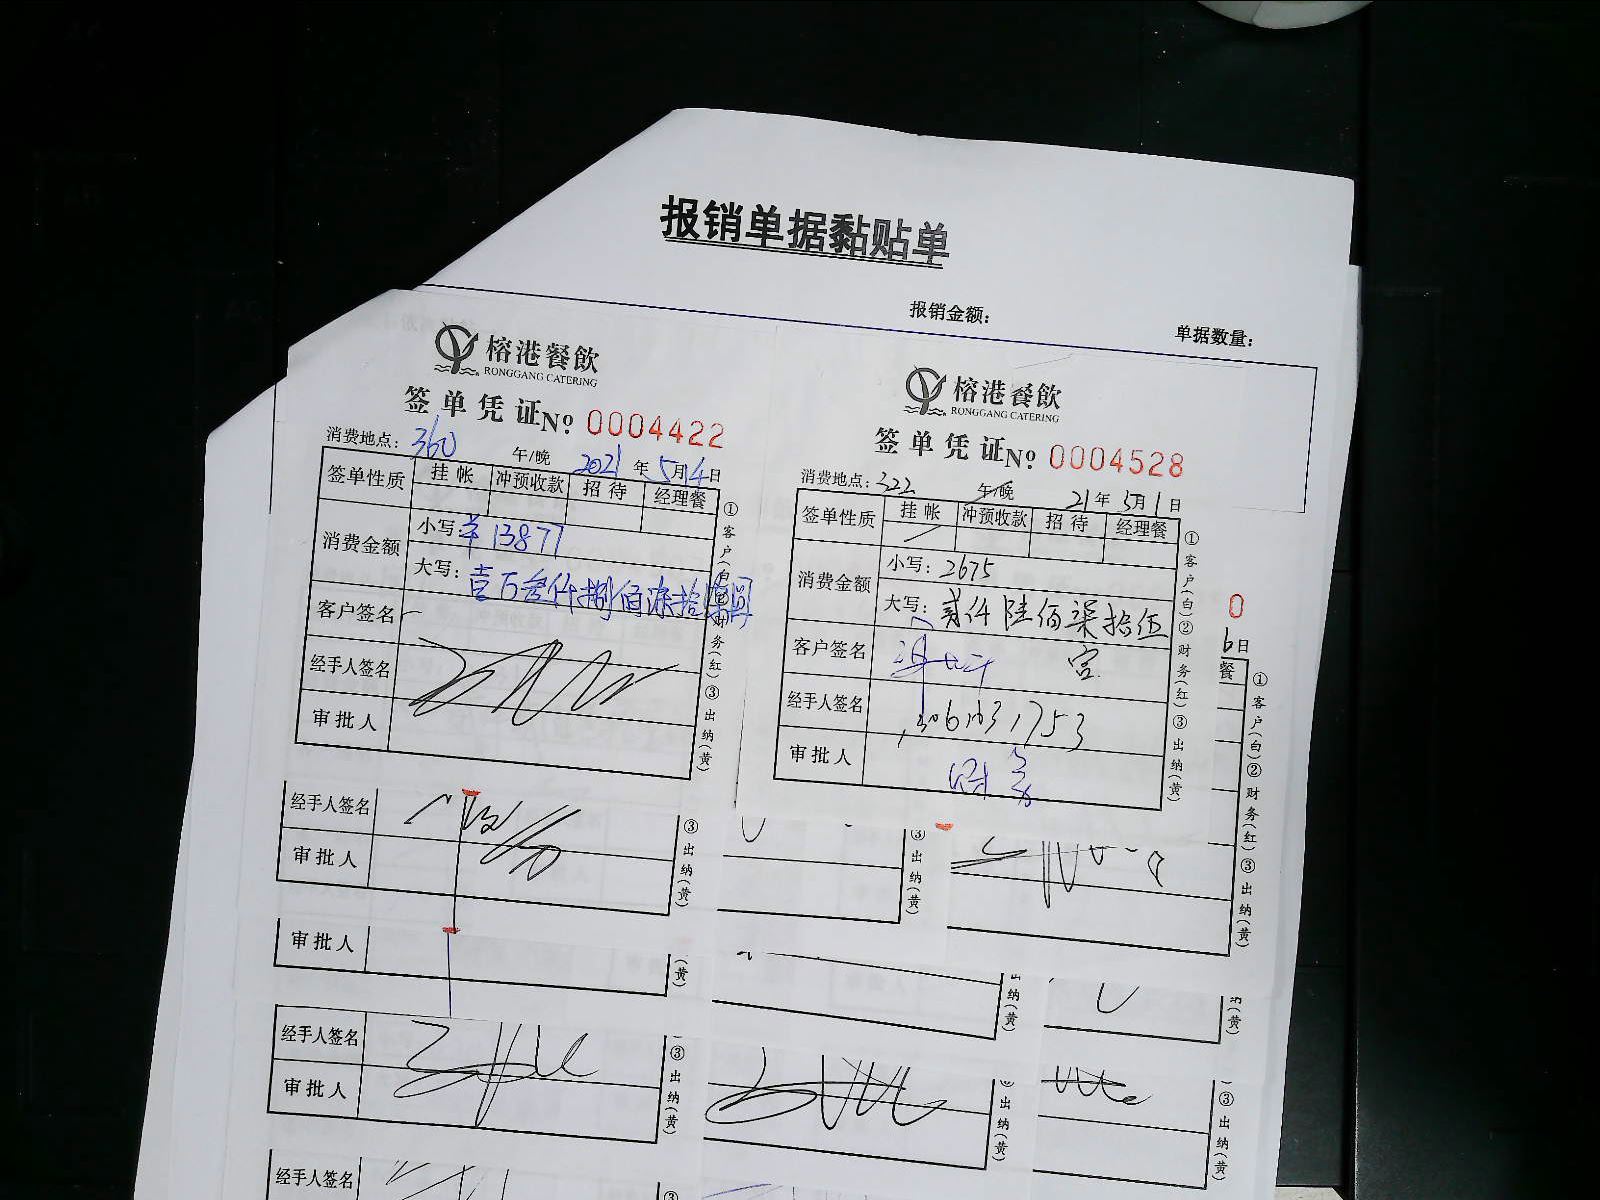 报销单据黏贴单
报销金额：
单据数量：
榕港餐飲
RONGGANG CATERING
签单凭证№ 0004422
消费地点：360 午/晚 2021年5月14日
签单性质 挂帐 冲预收款 招待 经理餐
消费金额 小写：¥13877
大写：壹万叁仟捌佰柒拾柒圆
客户签名
经手人签名
审批人
①客户(白)②财务(红)③出纳(黄)
榕港餐飲
RONGGANG CATERING
签单凭证№ 0004528
消费地点：322 午/晚 21年5月1日
签单性质 挂帐 冲预收款 招待 经理餐
消费金额 小写：2675
大写：贰仟陆佰柒拾伍
客户签名
经手人签名
审批人
①客户(白)②财务(红)③出纳(黄)
0
6日
餐
①客户(白)②财务(红)③出纳(黄)
经手人签名
审批人
③出纳(黄)
③出纳(黄)
审批人
(黄)
出纳(黄)
纳(黄)
经手人签名
审批人
③出纳(黄)
出纳(黄)
③出纳(黄)
经手人签名
③